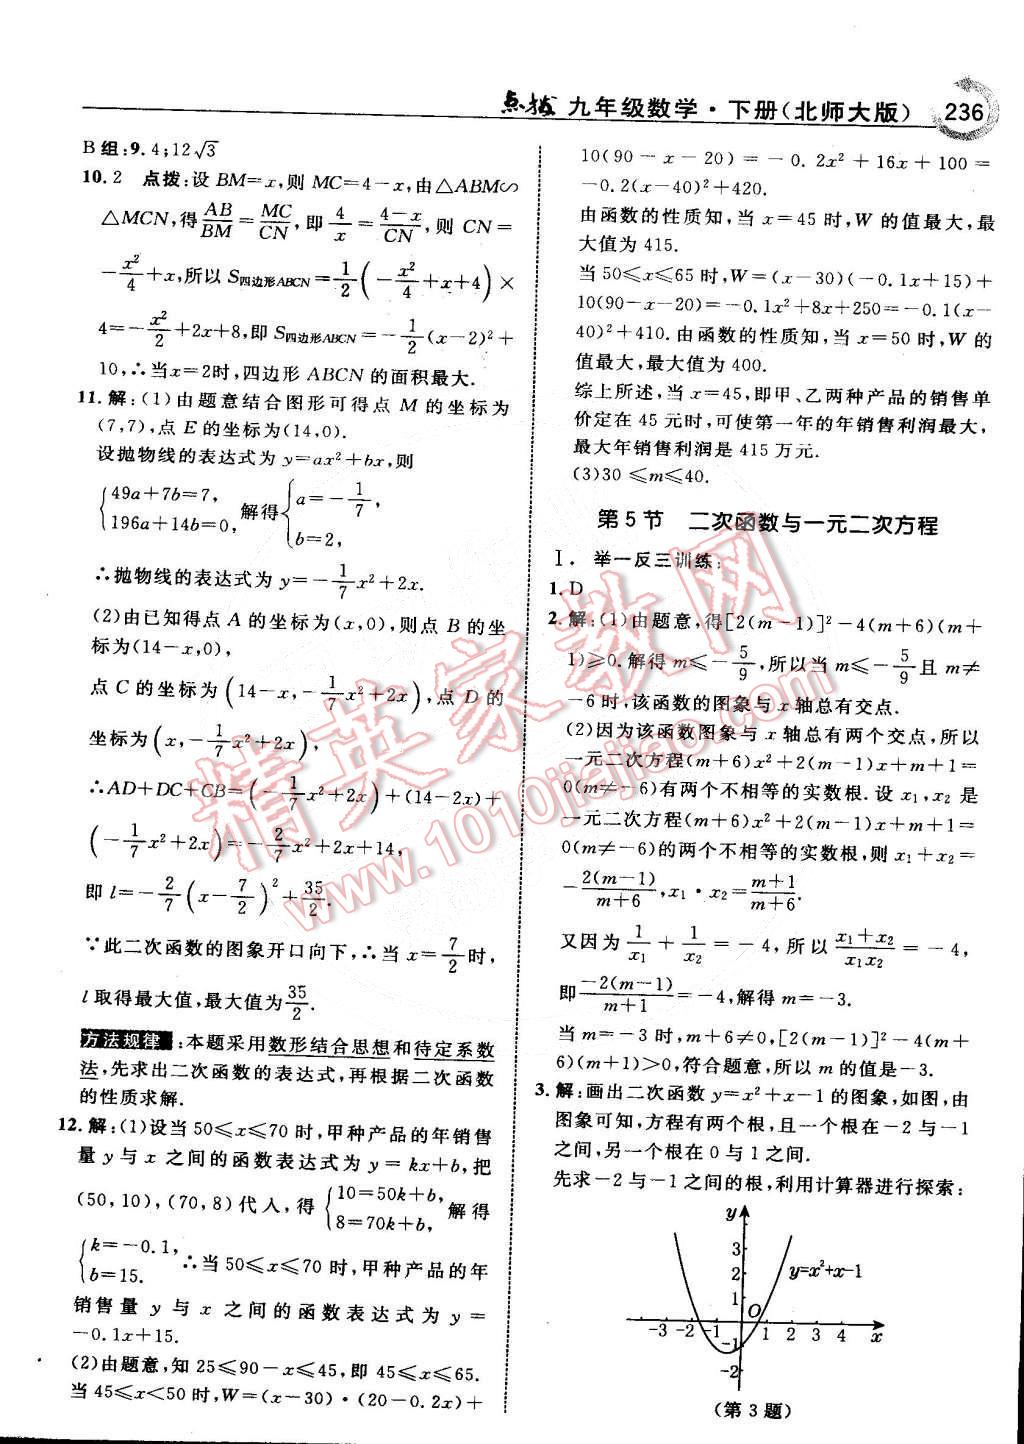 点拨 九年级数学·下册(北师大版) 236
B组:9. 4;12√3
10. 2 点拨:设 BM=x,则 MC=4-x,由△ABM∽
△MCN,得 AB/BM = MC/CN,即 4/x = (4-x)/CN,则 CN=
-x²/4+x,所以 S四边形ABCN=1/2(-x²/4+x+4)×
4=-x²/2+2x+8,即 S四边形ABCN=-1/2(x-2)²+
10,∴当x=2时,四边形 ABCN 的面积最大.
11. 解:(1)由题意结合图形可得点 M 的坐标为
(7,7),点 E 的坐标为(14,0).
设抛物线的表达式为 y=ax²+bx,则
{49a+7b=7, 196a+14b=0, 解得 {a=-1/7, b=2,
∴抛物线的表达式为 y=-1/7x²+2x.
(2)由已知得点 A 的坐标为(x,0),则点 B 的坐
标为(14-x,0),
点 C 的坐标为(14-x,-1/7x²+2x),点 D 的
坐标为(x,-1/7x²+2x),
∴AD+DC+CB=(-1/7x²+2x)+(14-2x)+
(-1/7x²+2x)=-2/7x²+2x+14,
即 l=-2/7(x-7/2)²+35/2.
∵此二次函数的图象开口向下,∴当 x=7/2时,
l取得最大值,最大值为35/2.
方法规律:本题采用数形结合思想和待定系数
法,先求出二次函数的表达式,再根据二次函数
的性质求解.
12. 解:(1)设当 50≤x≤70 时,甲种产品的年销售
量 y 与 x 之间的函数表达式为 y=kx+b,把
(50,10),(70,8)代人,得 {10=50k+b, 8=70k+b, 解得
{k=-0.1, b=15. ∴当 50≤x≤70 时,甲种产品的年
销售量 y 与 x 之间的函数表达式为 y=
-0.1x+15.
(2)由题意,知 25≤90-x≤45,即 45≤x≤65.
当 45≤x<50 时,W=(x-30)·(20-0.2x)+
10(90-x-20)=-0.2x²+16x+100=
-0.2(x-40)²+420.
由函数的性质知,当 x=45 时,W 的值最大,最
大值为 415.
当 50≤x≤65 时,W=(x-30)(-0.1x+15)+
10(90-x-20)=-0.1x²+8x+250=-0.1(x-
40)²+410.由函数的性质知,当 x=50 时,W 的
值最大,最大值为 400.
综上所述,当 x=45,即甲、乙两种产品的销售单
价定在 45 元时,可使第一年的年销售利润最大,
最大年销售利润是 415 万元.
(3)30≤m≤40.
第 5 节 二次函数与一元二次方程
Ⅰ. 举一反三训练:
1. D
2. 解:(1)由题意,得[2(m-1)]²-4(m+6)(m+
1)≥0.解得 m≤-5/9,所以当 m≤-5/9且 m≠
-6时,该函数的图象与 x轴总有交点.
(2)因为该函数图象与 x 轴总有两个交点,所以
一元二次方程(m+6)x²+2(m-1)x+m+1=
0(m≠-6)有两个不相等的实数根.设 x₁,x₂ 是
一元二次方程(m+6)x²+2(m-1)x+m+1=
0(m≠-6)的两个不相等的实数根,则 x₁+x₂=
-2(m-1)/(m+6),x₁·x₂=(m+1)/(m+6).
又因为 1/x₁+1/x₂=-4,所以 (x₁+x₂)/(x₁x₂)=-4,
即 -2(m-1)/(m+1)=-4,解得 m=-3.
当 m=-3 时,m+6≠0,[2(m-1)]²-4(m+
6)(m+1)>0,符合题意,所以 m 的值是-3.
3. 解:画出二次函数 y=x²+x-1 的图象,如图,由
图象可知,方程有两个根,且一个根在-2 与-1
之间,另一个根在 0 与 1 之间.
先求-2 与-1 之间的根,利用计算器进行探索:
y
3
2
1
y=x²+x-1
O
-3 -2 -1 1 2 3 4 x
-1
-2
(第 3 题)
精英家教网
www.1010jiajiao.com